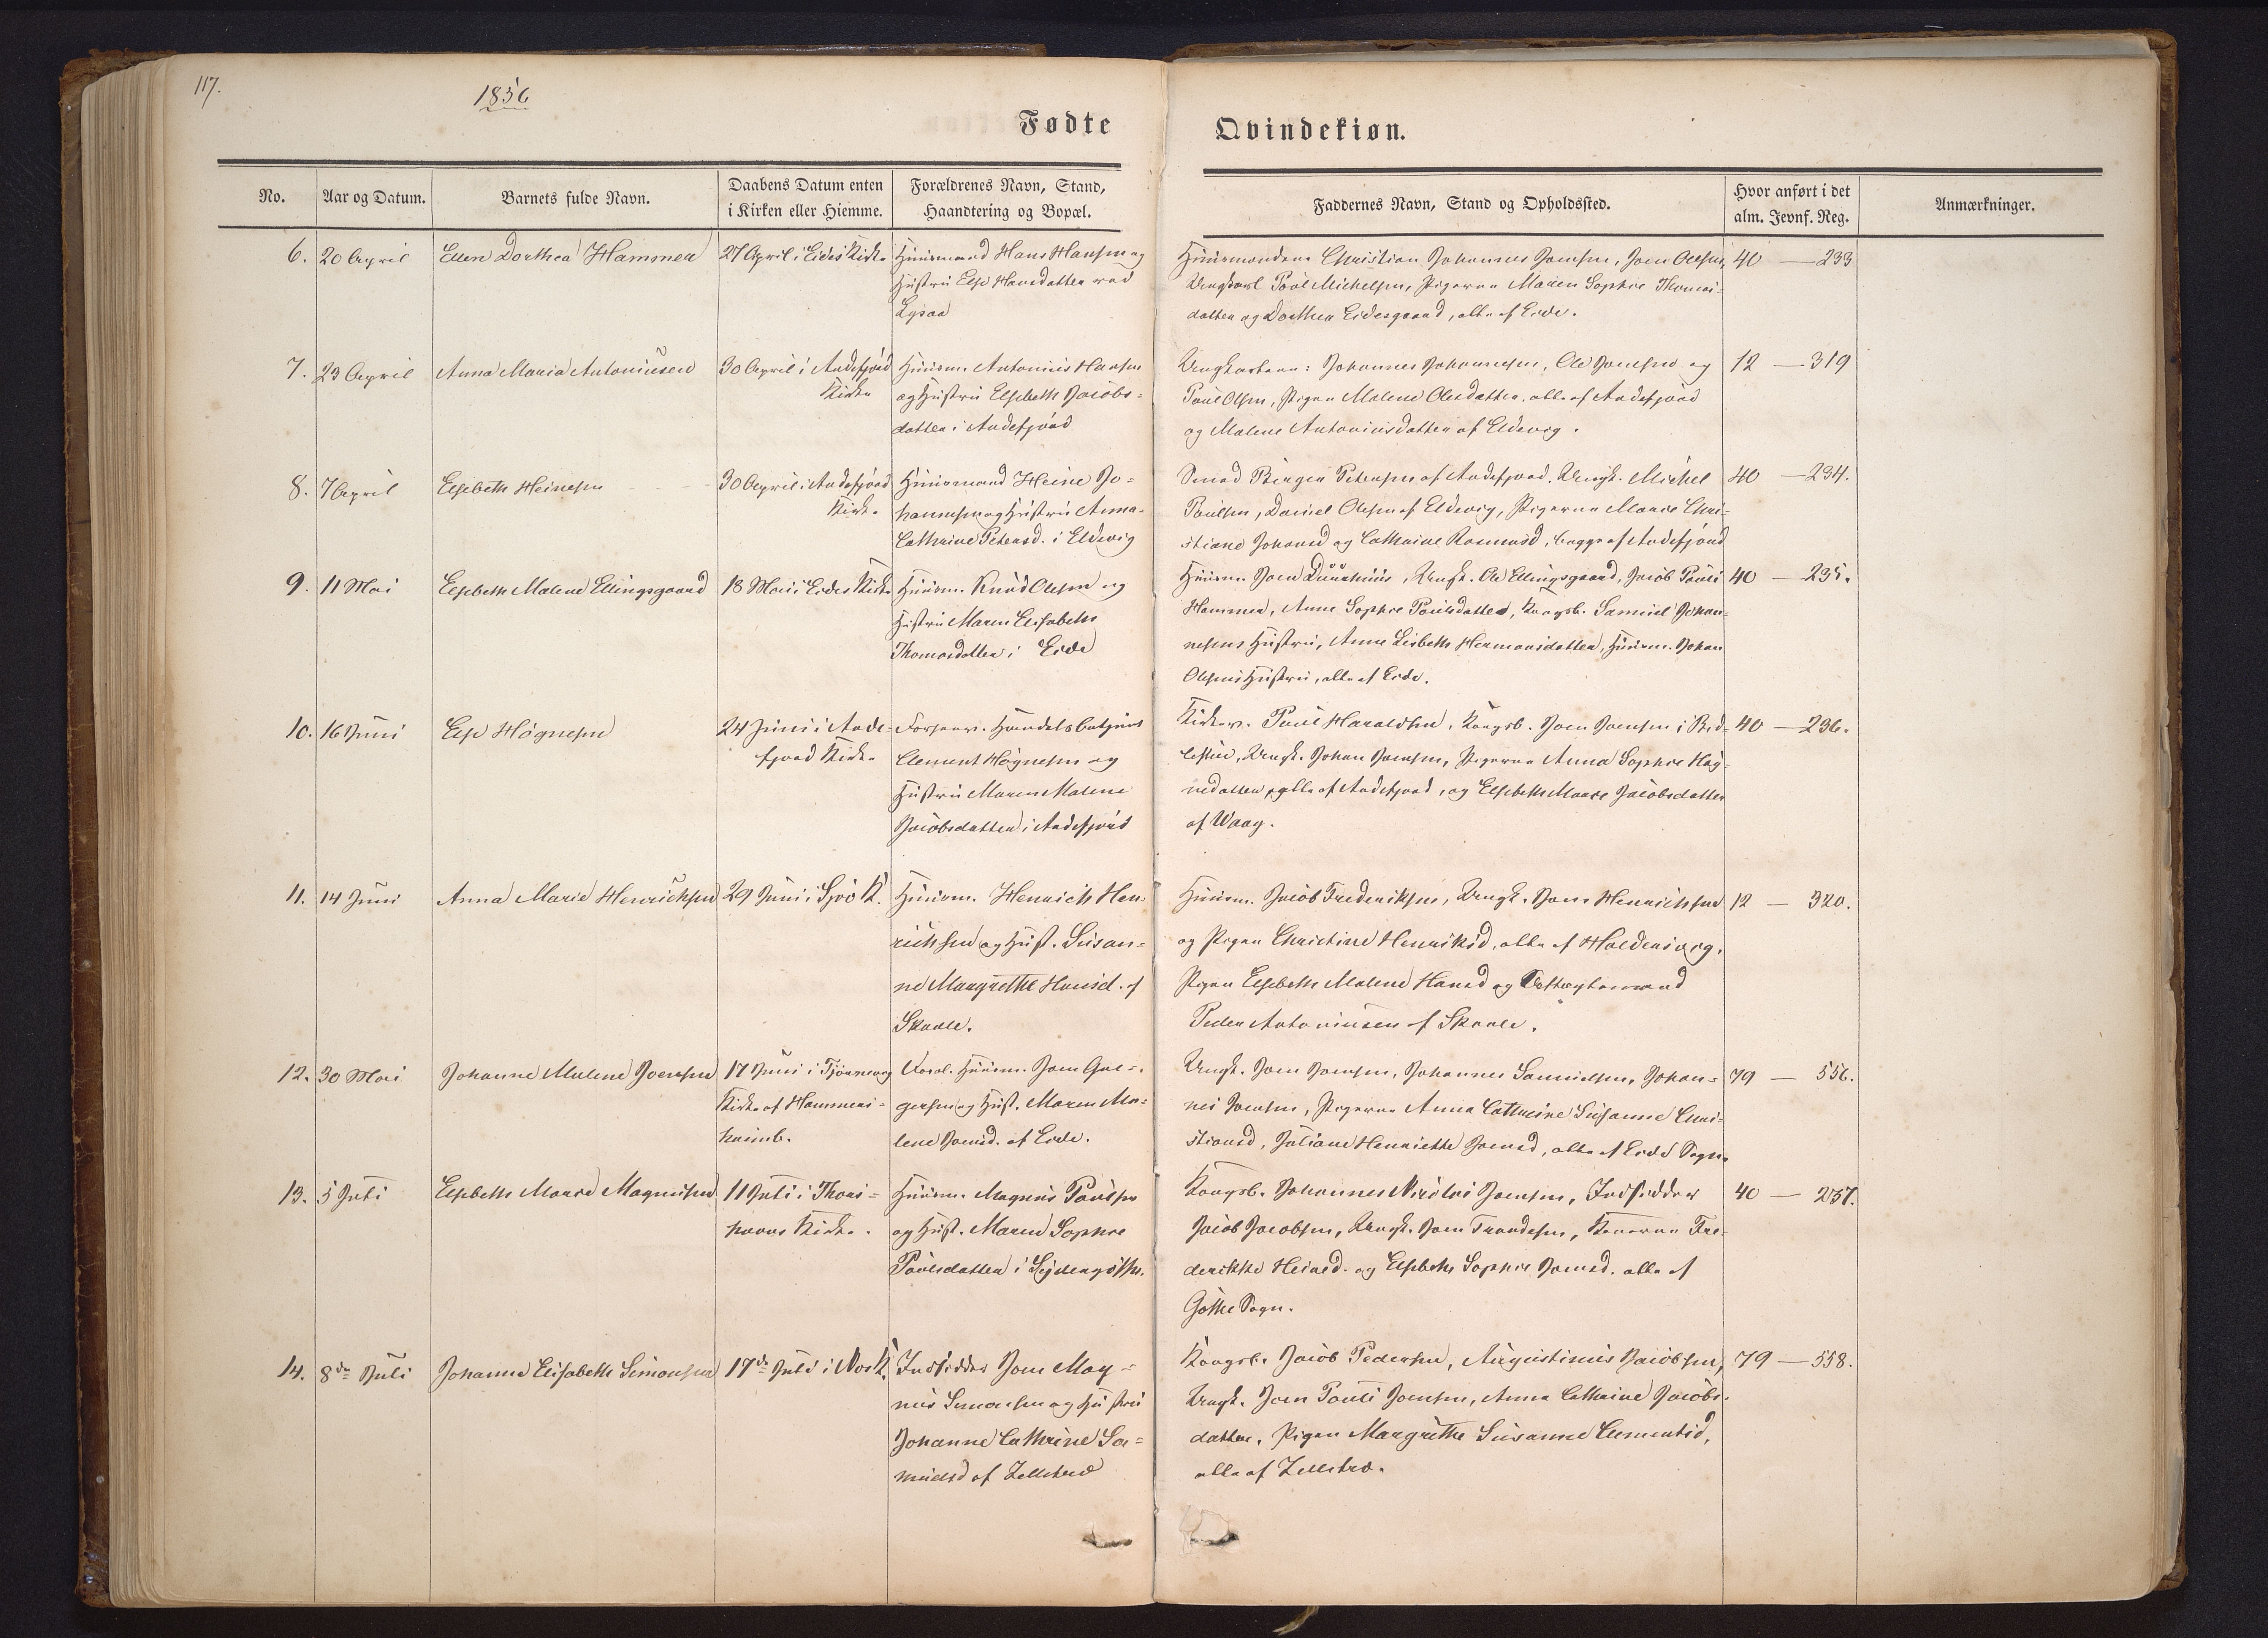 117.
1856
Fødte
Qvindekiøn.
No.
Aar og Datum.
Barnets fulde Navn.
Daabens Datum enten
i Kirken eller Hiemme.
Forældrenes Navn, Stand,
Haandtering og Bopæl.
Faddernes Navn, Stand og Opholdssted.
Hvor anført i det
alm. Jevnf. Reg.
Anmærkninger.
6.
20 April
Ellen Dorthea Hammer
27 April i Eides Kirke
Huusmand Hans Hansen og
Hustru Else Hansdatter ved
Lysaa
Huusmændene Christian Johannes Joensen, Joen Olesen,
Ungkarl Poul Michelsen, Pigerne Maren Sophie Thomas-
datter og Dorthea Eidesgaard, alle af Eide.
40 — 233
7.
23 April
Anna Maria Antoniusen
30 April i Andefjord
Kirke
Huusm. Antonius Hansen
og Hustru Elsebeth Jacobs-
datter i Andefjord
Ungkarlene: Johannes Johannesen, Ole Joensen og
Poul Olsen, Pigen Malene Olesdatter, alle af Andefjord
og Malene Antoniusdatter af Eldevig.
12 — 319
8.
7 April
Elsebeth Heinesen
30 April i Andefjord
Kirke
Huusmand Heine Jo-
hannesen og Hustru Anna
Cathrine Petersd. i Eldevig
Smed Petersen af Andefjord, Ungk. Michel
Poulsen, Daniel Olesen af Eldevig, Pigerne Marie Chri-
stiane Johansd og Cathrine Rasmusd, begge af Andefjord
40 — 234.
9.
11 Mai
Elsebeth Malene Ellingsgaard
18 Mai i Eides Kirke
Huusm. Knud Olesen og
Hustru Maren Elisabeth
Thomasdatter i Eide
Huusm. Joen Duurhuus, Ungk. Ole Ellingsgaard, Jacob Pauli
Hammer, Anne Sophie Poulsdatter, Kongsb. Samuel Johan-
nesens Hustru, Anne Lisbeth Hermansdatter, Huusm. Johan
Olesens Hustru, alle af Eide.
40 — 235.
10.
16 Juni
Else Høgnesen
24 Juni i Ande-
fjord Kirke
Forhenv. Handelsbetjent
Clement Høgnesen og
Hustru Maren Malene
Jacobsdatter i Andefjord
Kirkev. Poul Haraldsen, Kongsb. Joen Joensen i
Ungk. Johan Joensen, Pigerne Anna Sophie Høg-
nedatter, alle af Andefjord, og Elsebeth Marie Jacobsdatter
af Waag.
40 — 236.
11.
14 Juni
Anna Marie Henrichsen
29 Juni i Gjov K.
Huusm. Henrich Hen-
richsen og Hust. Susan-
ne Margrethe Hansd. af
Skaale.
Huusm. Jacob Frederiksen, Ungk. Hans Henrichsen
og Pigen Christine Henriksd, alle af Haldersvig,
Pigen Elsebeth Malene Hansd og Aftægtsmand
Peder Antoniusen af Skaale.
12 — 320.
12.
30 Mai
Johanne Malene Joensen
17 Juni i Tjørnevig
Kirke af Hammers-
haimb.
Huusm. Joen Gre-
gersen og Hust. Maren Ma-
lene Joensd. af Eide.
Ungk. Joen Joensen, Johannes Samuelsen, Johan-
nes Joensen, Pigerne Anna Cathrine Susanne Chri-
stiansd, Juliane Henriette Joensd, alle af Eide Sogn
79 — 556.
13.
5 Juli
Elsebeth Marie Magnussen
11 Juli i Thors-
havns Kirke.
Huusm. Magnus Poulsen
og Hust. Maren Sophie
Poulsdatter i Sydergøthe.
Kongsb. Johannes Nicolai Joensen, Indsidder
Jacob Jacobsen, Ungk. Joen Trondesen, Konerne Fre-
derikke Heined. og Elsebeth Sophie Joensd. alle af
Gøthe Sogn.
40 — 237.
14.
8de Juli
Johanne Elisabeth Simonsen
17de Juli i Næs K.
Indsidder Joen Mag-
nus Simonsen og Hustru
Johanne Cathrine Sa-
muelsd af Zelletræ
Kongsb. Jacob Pedersen, Augustinus Jacobsen,
Ungk. Joen Pauli Joensen, Anna Cathrine Jacobs-
datter, Pigen Margrethe Susanne Clementsd,
alle af Zelletræ.
79 — 558.